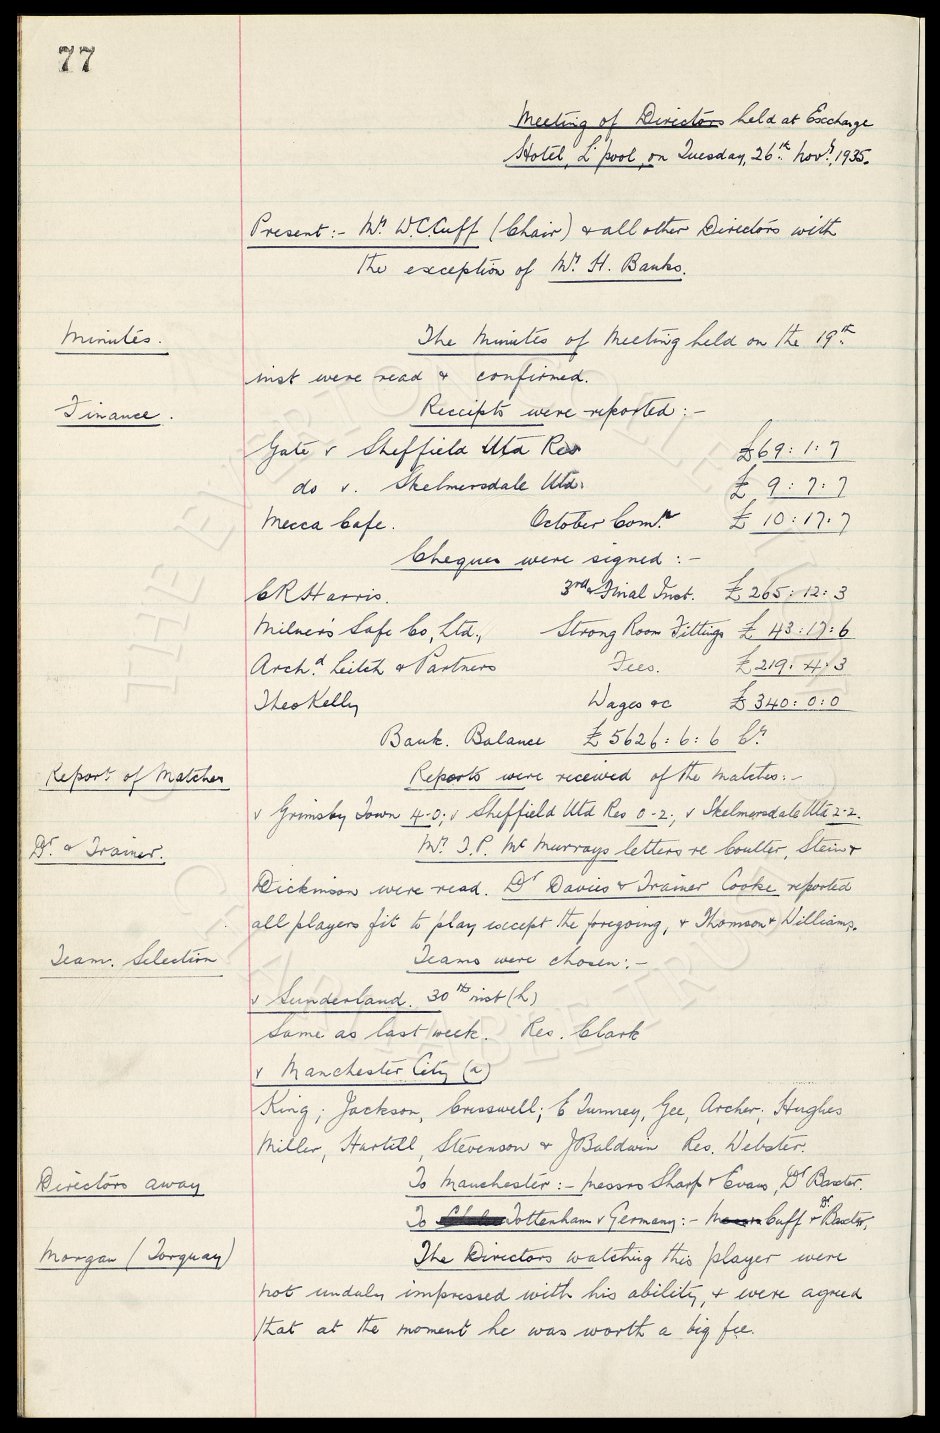 77
Meeting of Directors held at Exchange
Hotel, L'pool, on Tuesday, 26th Novr, 1935.
Present:- Mr. W.C. Cuff (Chair) & all other Directors with
the exception of Mr. H. Banks.
Minutes. The Minutes of Meeting held on the 19th
inst were read & confirmed.
Finance. Receipts were reported:-
Gate v Sheffield Utd Res £69:1:7
do v. Skelmersdale Utd: £9:7:7
Mecca Cafe. October Comn £10:17:7
Cheques were signed:-
C R Harris. 3rd & Final Inst. £265:12:3
Milner's Safe Co, Ltd., Strong Room Fittings £43:17:6
Archd Leitch & Partners Fees. £219:4:3
Theo Kelly Wages &c £340:0:0
Bank. Balance £5626:6:6 Cr.
Report of Matches Reports were received of the matches:-
v Grimsby Town 4-0; v Sheffield Utd Res 0-2; v Skelmersdale Utd 2-2.
Dr. & Trainer. Mr. J.P. McMurrays letters re Coulter, Stein &
Dickinson were read. Dr Davies & Trainer Cooke reported
all players fit to play except the foregoing, & Thomson & Williams.
Team. Selection Teams were chosen:-
v Sunderland. 30th inst (h)
Same as last week. Res. Clark
v Manchester City (a)
King; Jackson, Cresswell; E Tunney, Gee, Archer; Hughes
Miller, Hartill, Stevenson & J Baldwin Res. Webster.
Directors away To Manchester:- Messrs Sharp & Evans, Dr Baxter.
To Tottenham v Germany:- Cuff & Dr Baxter.
Morgan (Torquay) The Directors watching this player were
not unduly impressed with his ability, & were agreed
that at the moment he was worth a big fee.
THE EVERTON COLLECTION
CHARITABLE TRUST